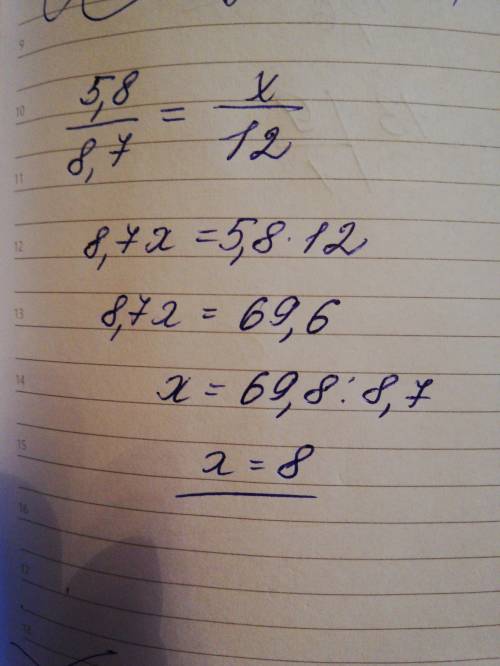 9
10
5,8/8,7 = x/12
11
12
8,7x = 5,8 · 12
13
8,7x = 69,6
14
x = 69,8 : 8,7
15
x = 8
16
17